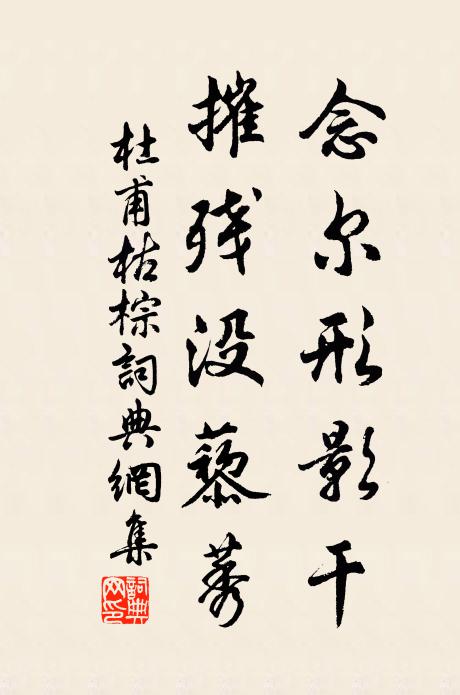 念尔形影干
摧残没藜莠
杜甫枯棕詞典網集
詞典网印